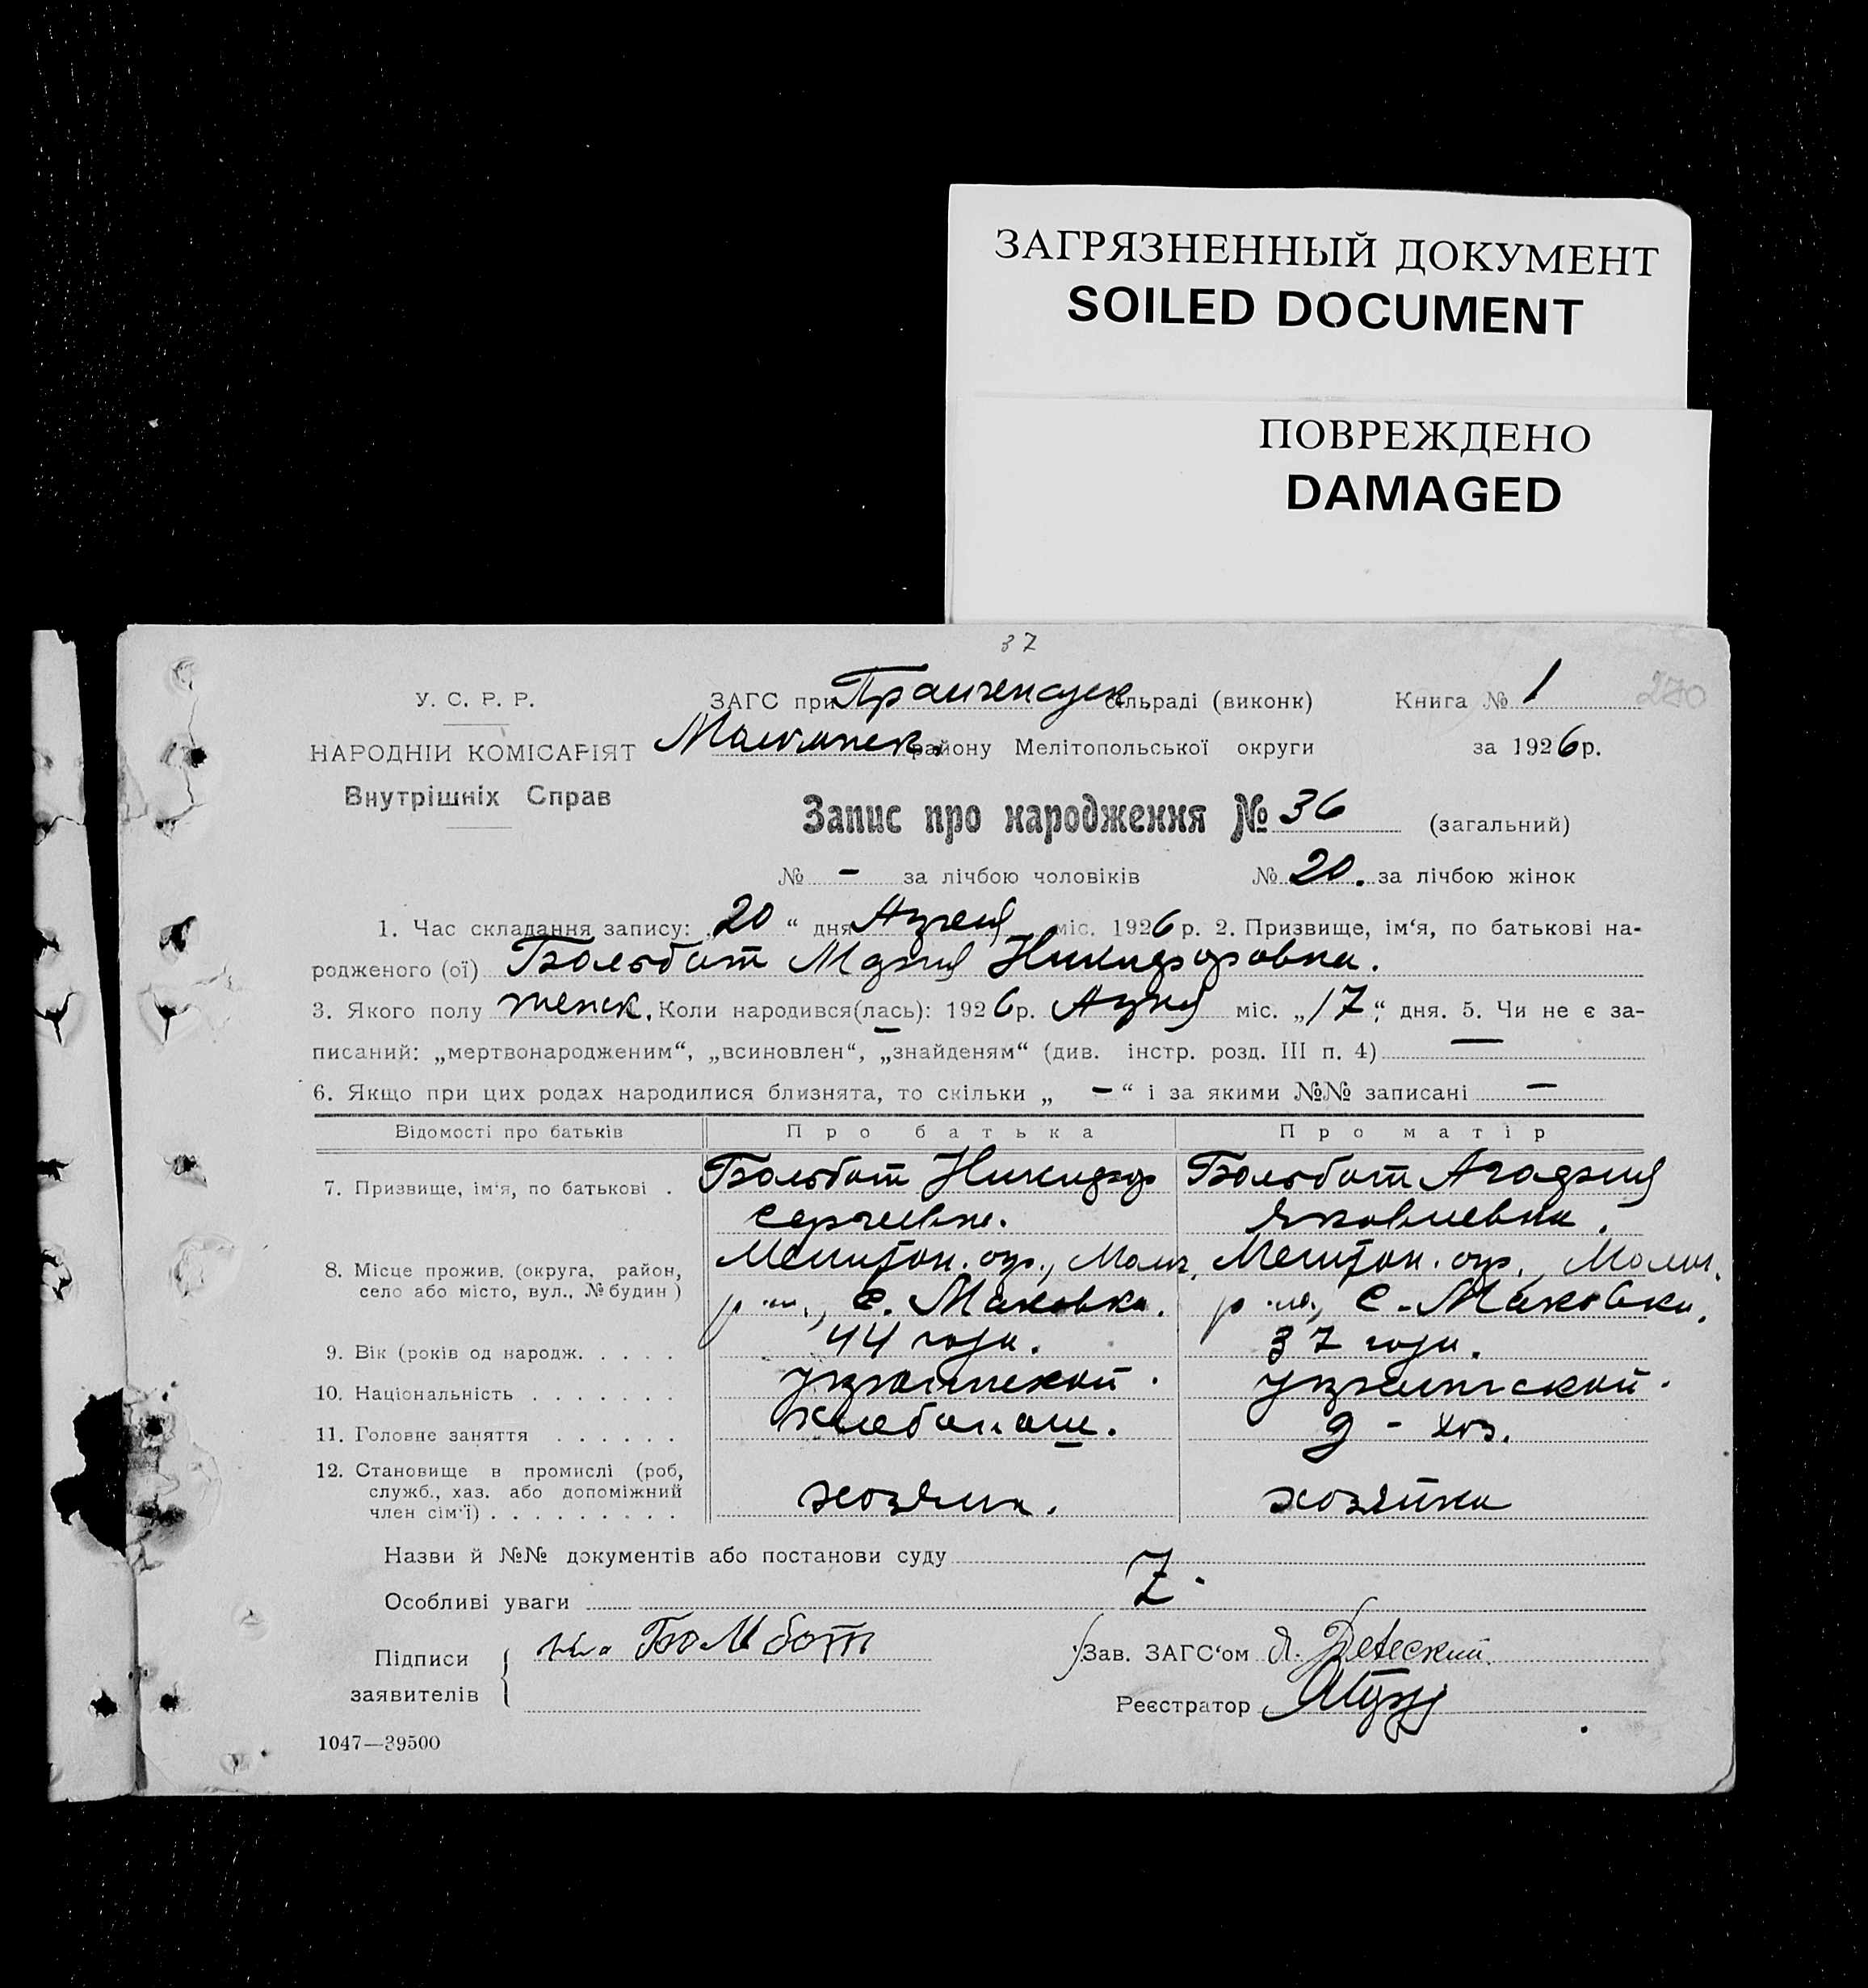 ЗАГРЯЗНЕННЫЙ ДОКУМЕНТ
SOILED DOCUMENT
ПОВРЕЖДЕНО
DAMAGED
37
У. С. Р. Р.
ЗАГС при сільраді (виконк) Книга № 1 270
НАРОДНІЙ КОМІСАРІЯТ
району Мелітопольської округи за 1926 р.
Внутрішніх Справ
Запис про народження № 36 (загальний)
№ – за лічбою чоловіків № 20. за лічбою жінок
1. Час складання запису: „20“ дня міс. 1926 р. 2. Призвище, ім‘я, по батькові на-
родженого (ої) Бальбат Мария Никифоровна.
3. Якого полу женск. Коли народився(лась): 1926 р. міс. „17“ дня. 5. Чи не є за-
писаний: „мертвонародженим“, „всиновлен“, „знайденям“ (див. інстр. розд. III п. 4) —
6. Якщо при цих родах народилися близнята, то скільки „ – “ і за якими №№ записані –
Відомості про батьків Про батька Про матір
7. Призвище, ім‘я, по батькові . Бальбат Никифор Бальбат Агафия
Сергеевич. Яковлевна.
8. Місце прожив. (округа, район, Мелитоп. окр., Молоч. Мелитоп. окр., Молоч.
село або місто, вул., № будин) р-на, с. Маковка. р-на, с. Маковка.
9. Вік (років од народж. . . . . 44 года. 37 года.
10. Національність . . . . . . . украинской. украинской.
11. Головне заняття . . . . . . хлебопаш. д - хоз.
12. Становище в промислі (роб,
служб., хаз. або допоміжний хозяин. хозяйка
член сім‘ї) . . . . . . . . .
Назви й №№ документів або постанови суду
Особливі уваги Z.
Підписи Бальбат Зав. ЗАГС‘ом
заявителів
Реєстратор
1047—39500